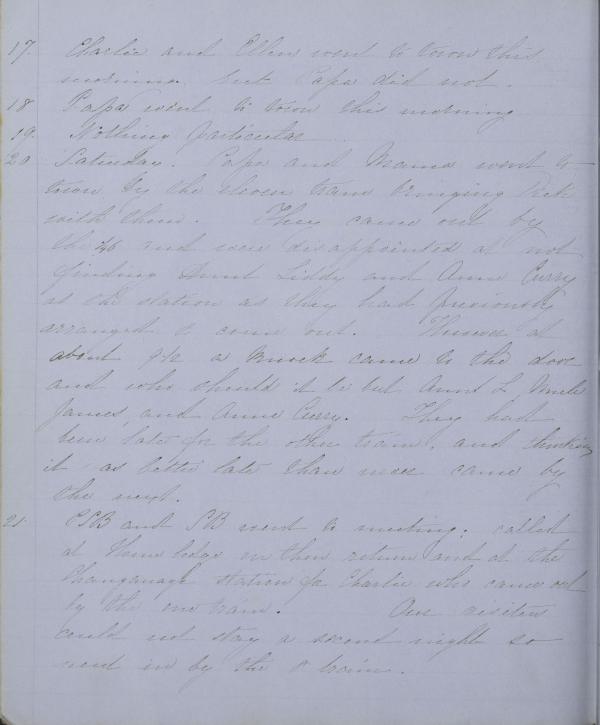 17. Charlie and Ellen went to town this
morning but Papa did not.
18 Papa went to town this morning
19. Nothing particular
20 Saturday. Papa and Mama went to
town by the eleven train bringing
with them. They came out by
the and were disappointed at not
finding Aunt Liddy and Anne Curry
at the station as they had previously
arranged to come out. However at
about a knock came to the door
and who should it be but Aunt L Uncle
James, and Anne Curry. They had
been late for the other train, and thinking
it as better late than never came by
the next.
21. and went to meeting; called
at Home on their return and at the
station for Charlie who came out
by the one train. Our visitors
could not stay a second night so
went in by the 8 train.